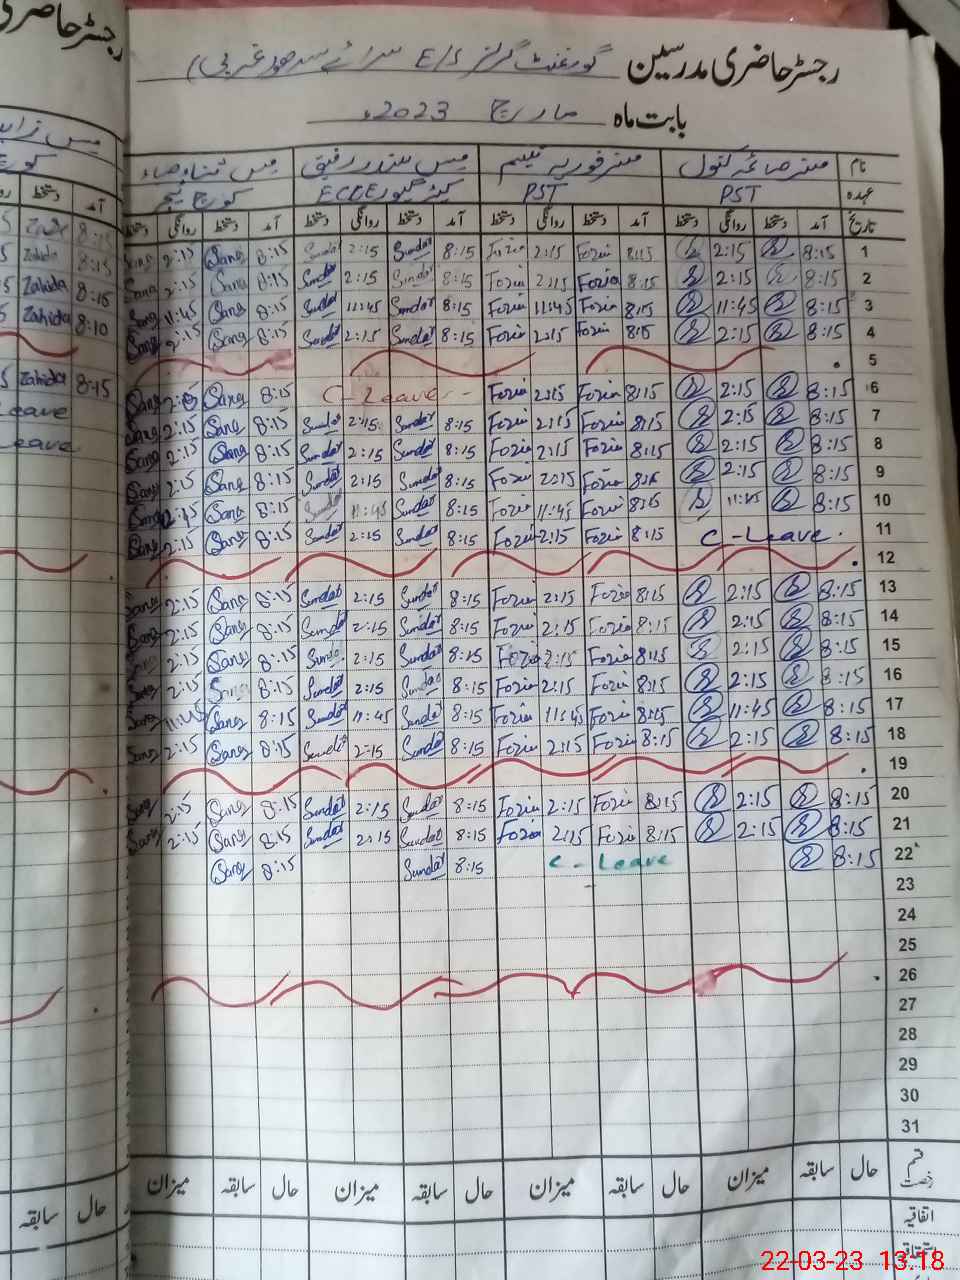 رجسٹر حاضری مدرسین گورنمنٹ گرلز E/S سرائے سدھو غربی)
بابت ماہ مارچ 2023ء
نام مسز صائمہ کنول مسز فوزیہ نسیم مس سندر رفیق مس ثناء
عہدہ PST PST کیئر گیور ECCE کوچ ٹیچر
تاریخ آمد دستخط روانگی دستخط آمد دستخط روانگی دستخط آمد دستخط روانگی دستخط آمد دستخط روانگی دستخط
1 8:15 2:15 8:15 Fozia 2:15 Fozia 8:15 Sundar 2:15 Sundar 8:15 Sana 2:15 Sana
2 8:15 2:15 8:15 Fozia 2:15 Fozia 8:15 Sundar 2:15 Sundar 8:15 Sana 2:15 Sana
3 8:15 11:45 8:15 Fozia 11:45 Fozia 8:15 Sundar 11:45 Sundar 8:15 Sana 11:45 Sana
4 8:15 2:15 8:15 Fozia 2:15 Fozia 8:15 Sundar 2:15 Sundar 8:15 Sana 2:15 Sana
5
6 8:15 2:15 8:15 Fozia 2:15 Fozia C-Leave 8:15 Sana Sana
7 8:15 2:15 8:15 Fozia 2:15 Fozia 8:15 Sundar 2:15 Sundar 8:15 Sana 2:15 Sana
8 8:15 2:15 8:15 Fozia 2:15 Fozia 8:15 Sundar 2:15 Sundar 8:15 Sana 2:15 Sana
9 8:15 2:15 8:15 Fozia 2:15 Fozia 8:15 Sundar 2:15 Sundar 8:15 Sana 2:15 Sana
10 8:15 11:45 8:15 Fozia 11:45 Fozia 8:15 Sundar 11:45 Sundar 8:15 Sana Sana
11 C-Leave. 8:15 Fozia 2:15 Fozia 8:15 Sundar 2:15 Sundar 8:15 Sana 2:15 Sana
12
13 8:15 2:15 8:15 Fozia 2:15 Fozia 8:15 Sundar 2:15 Sundar 8:15 Sana 2:15 Sana
14 8:15 2:15 8:15 Fozia 2:15 Fozia 8:15 Sundar 2:15 Sundar 8:15 Sana 2:15 Sana
15 8:15 2:15 8:15 Fozia 2:15 Fozia 8:15 Sundar 2:15 Sundar 8:15 Sana 2:15 Sana
16 8:15 2:15 8:15 Fozia 2:15 Fozia 8:15 Sundar 2:15 Sundar 8:15 Sana 2:15 Sana
17 8:15 11:45 8:15 Fozia 11:45 Fozia 8:15 Sundar 11:45 Sundar 8:15 Sana 11:45 Sana
18 8:15 2:15 8:15 Fozia 2:15 Fozia 8:15 Sundar 2:15 Sundar 8:15 Sana 2:15 Sana
19
20 8:15 2:15 8:15 Fozia 2:15 Fozia 8:15 Sundar 2:15 Sundar 8:15 Sana 2:15 Sana
21 8:15 2:15 8:15 Fozia 2:15 Fozia 8:15 Sundar 2:15 Sundar 8:15 Sana 2:15 Sana
22 8:15 C-Leave 8:15 Sundar 8:15 Sana
23
24
25
26
27
28
29
30
31
قسم رخصت حال سابقہ میزان حال سابقہ میزان حال سابقہ میزان حال سابقہ میزان
اتفاقیہ
استحقاقیہ
رجسٹر حاضری
آمد دستخط
8:15
8:15 Zahida
8:15 Zahida
8:10 Zahida
8:15 Zahida
Leave
Leave
حال سابقہ
22-03-23 13:18